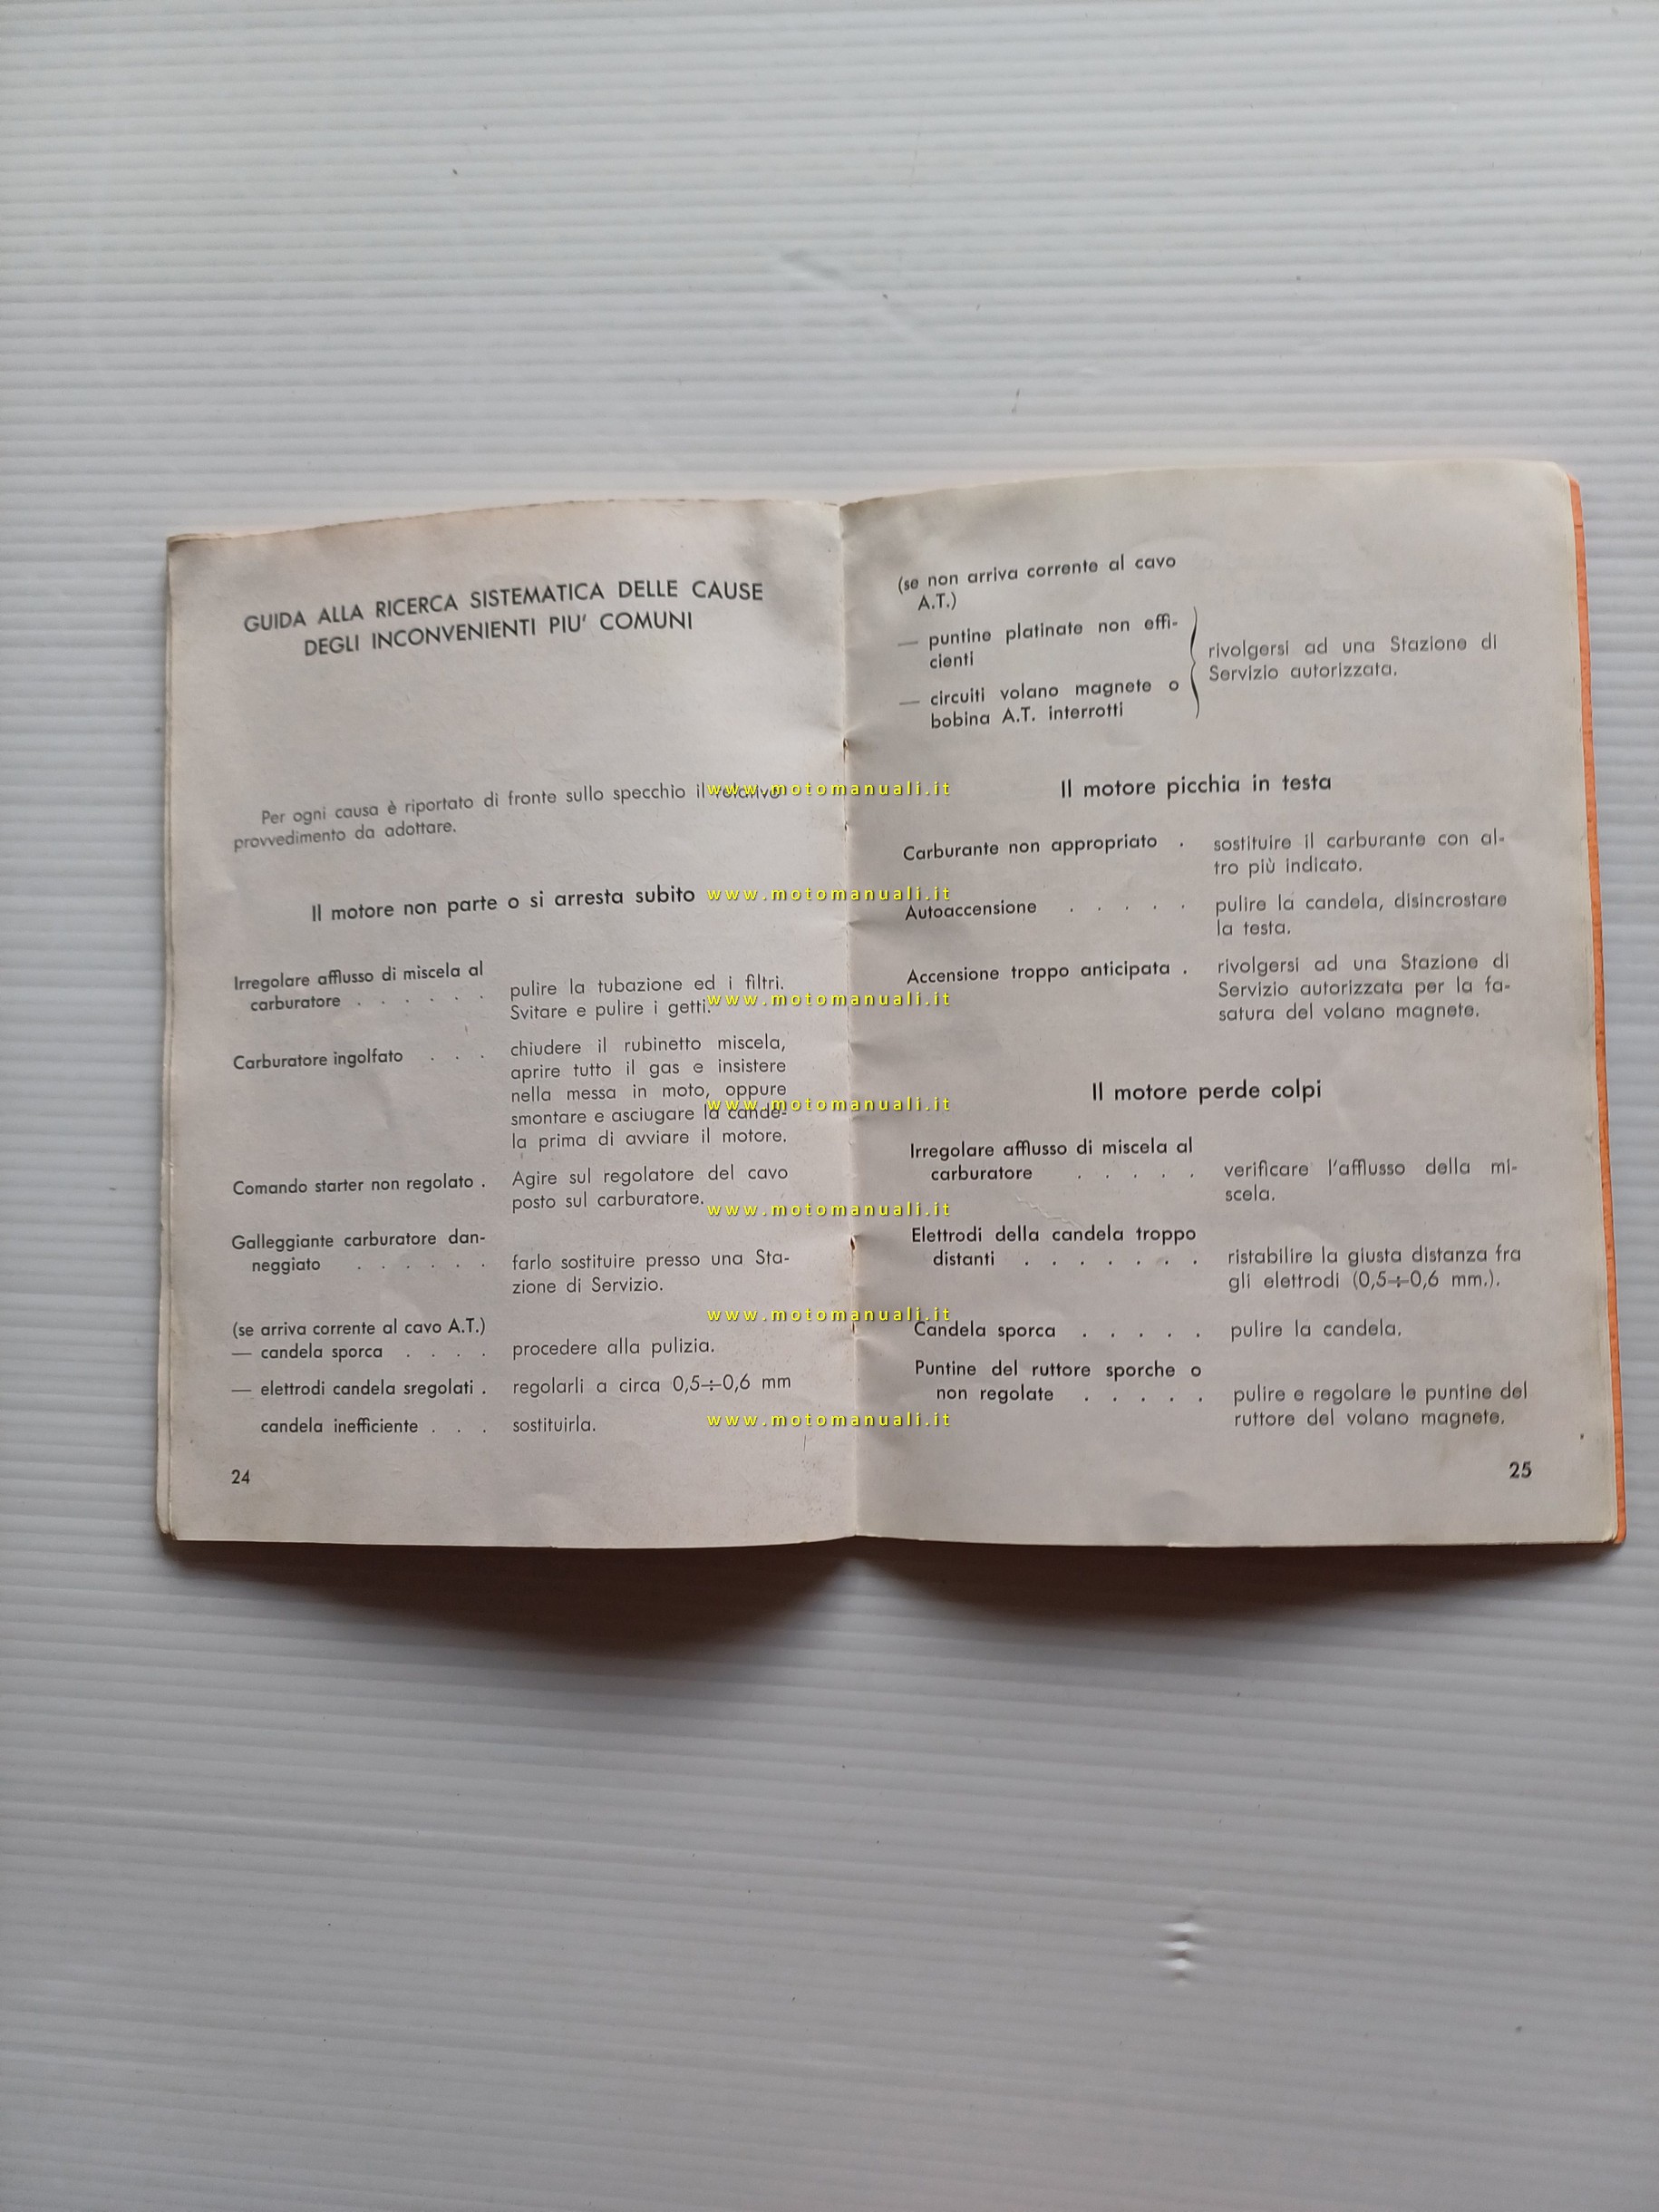 GUIDA ALLA RICERCA SISTEMATICA DELLE CAUSE
DEGLI INCONVENIENTI PIU' COMUNI
Per ogni causa è riportato di fronte sullo specchio il relativo
provvedimento da adottare.
Il motore non parte o si arresta subito
Irregolare afflusso di miscela al
carburatore . . . . . .
pulire la tubazione ed i filtri.
Svitare e pulire i getti.
Carburatore ingolfato . . .
chiudere il rubinetto miscela,
aprire tutto il gas e insistere
nella messa in moto, oppure
smontare e asciugare la cande-
la prima di avviare il motore.
Comando starter non regolato .
Agire sul regolatore del cavo
posto sul carburatore.
Galleggiante carburatore dan-
neggiato . . . . . .
farlo sostituire presso una Sta-
zione di Servizio.
(se arriva corrente al cavo A.T.)
— candela sporca . . . . procedere alla pulizia.
— elettrodi candela sregolati . regolarli a circa 0,5÷0,6 mm
candela inefficiente . . . sostituirla.
24
(se non arriva corrente al cavo
A.T.)
— puntine platinate non effi-
cienti
— circuiti volano magnete o
bobina A.T. interrotti
rivolgersi ad una Stazione di
Servizio autorizzata.
Il motore picchia in testa
Carburante non appropriato .
sostituire il carburante con al-
tro più indicato.
Autoaccensione . . . . .
pulire la candela, disincrostare
la testa.
Accensione troppo anticipata .
rivolgersi ad una Stazione di
Servizio autorizzata per la fa-
satura del volano magnete.
Il motore perde colpi
Irregolare afflusso di miscela al
carburatore . . . . .
verificare l'afflusso della mi-
scela.
Elettrodi della candela troppo
distanti . . . . . . .
ristabilire la giusta distanza fra
gli elettrodi (0,5÷0,6 mm.).
Candela sporca . . . . . pulire la candela.
Puntine del ruttore sporche o
non regolate . . . . .
pulire e regolare le puntine del
ruttore del volano magnete.
25
www.motomanuali.it
www.motomanuali.it
www.motomanuali.it
www.motomanuali.it
www.motomanuali.it
www.motomanuali.it
www.motomanuali.it